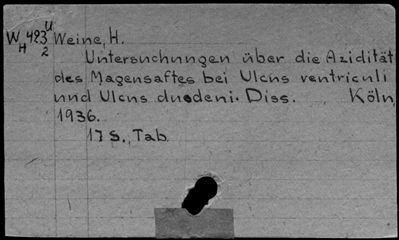 W 423 U Weine, H.
H 2
Untersuchungen über die Azidität
des Magensaftes bei Ulcus ventriculi
und Ulcus duodeni. Diss. Köln,
1936.
17 S., Tab.